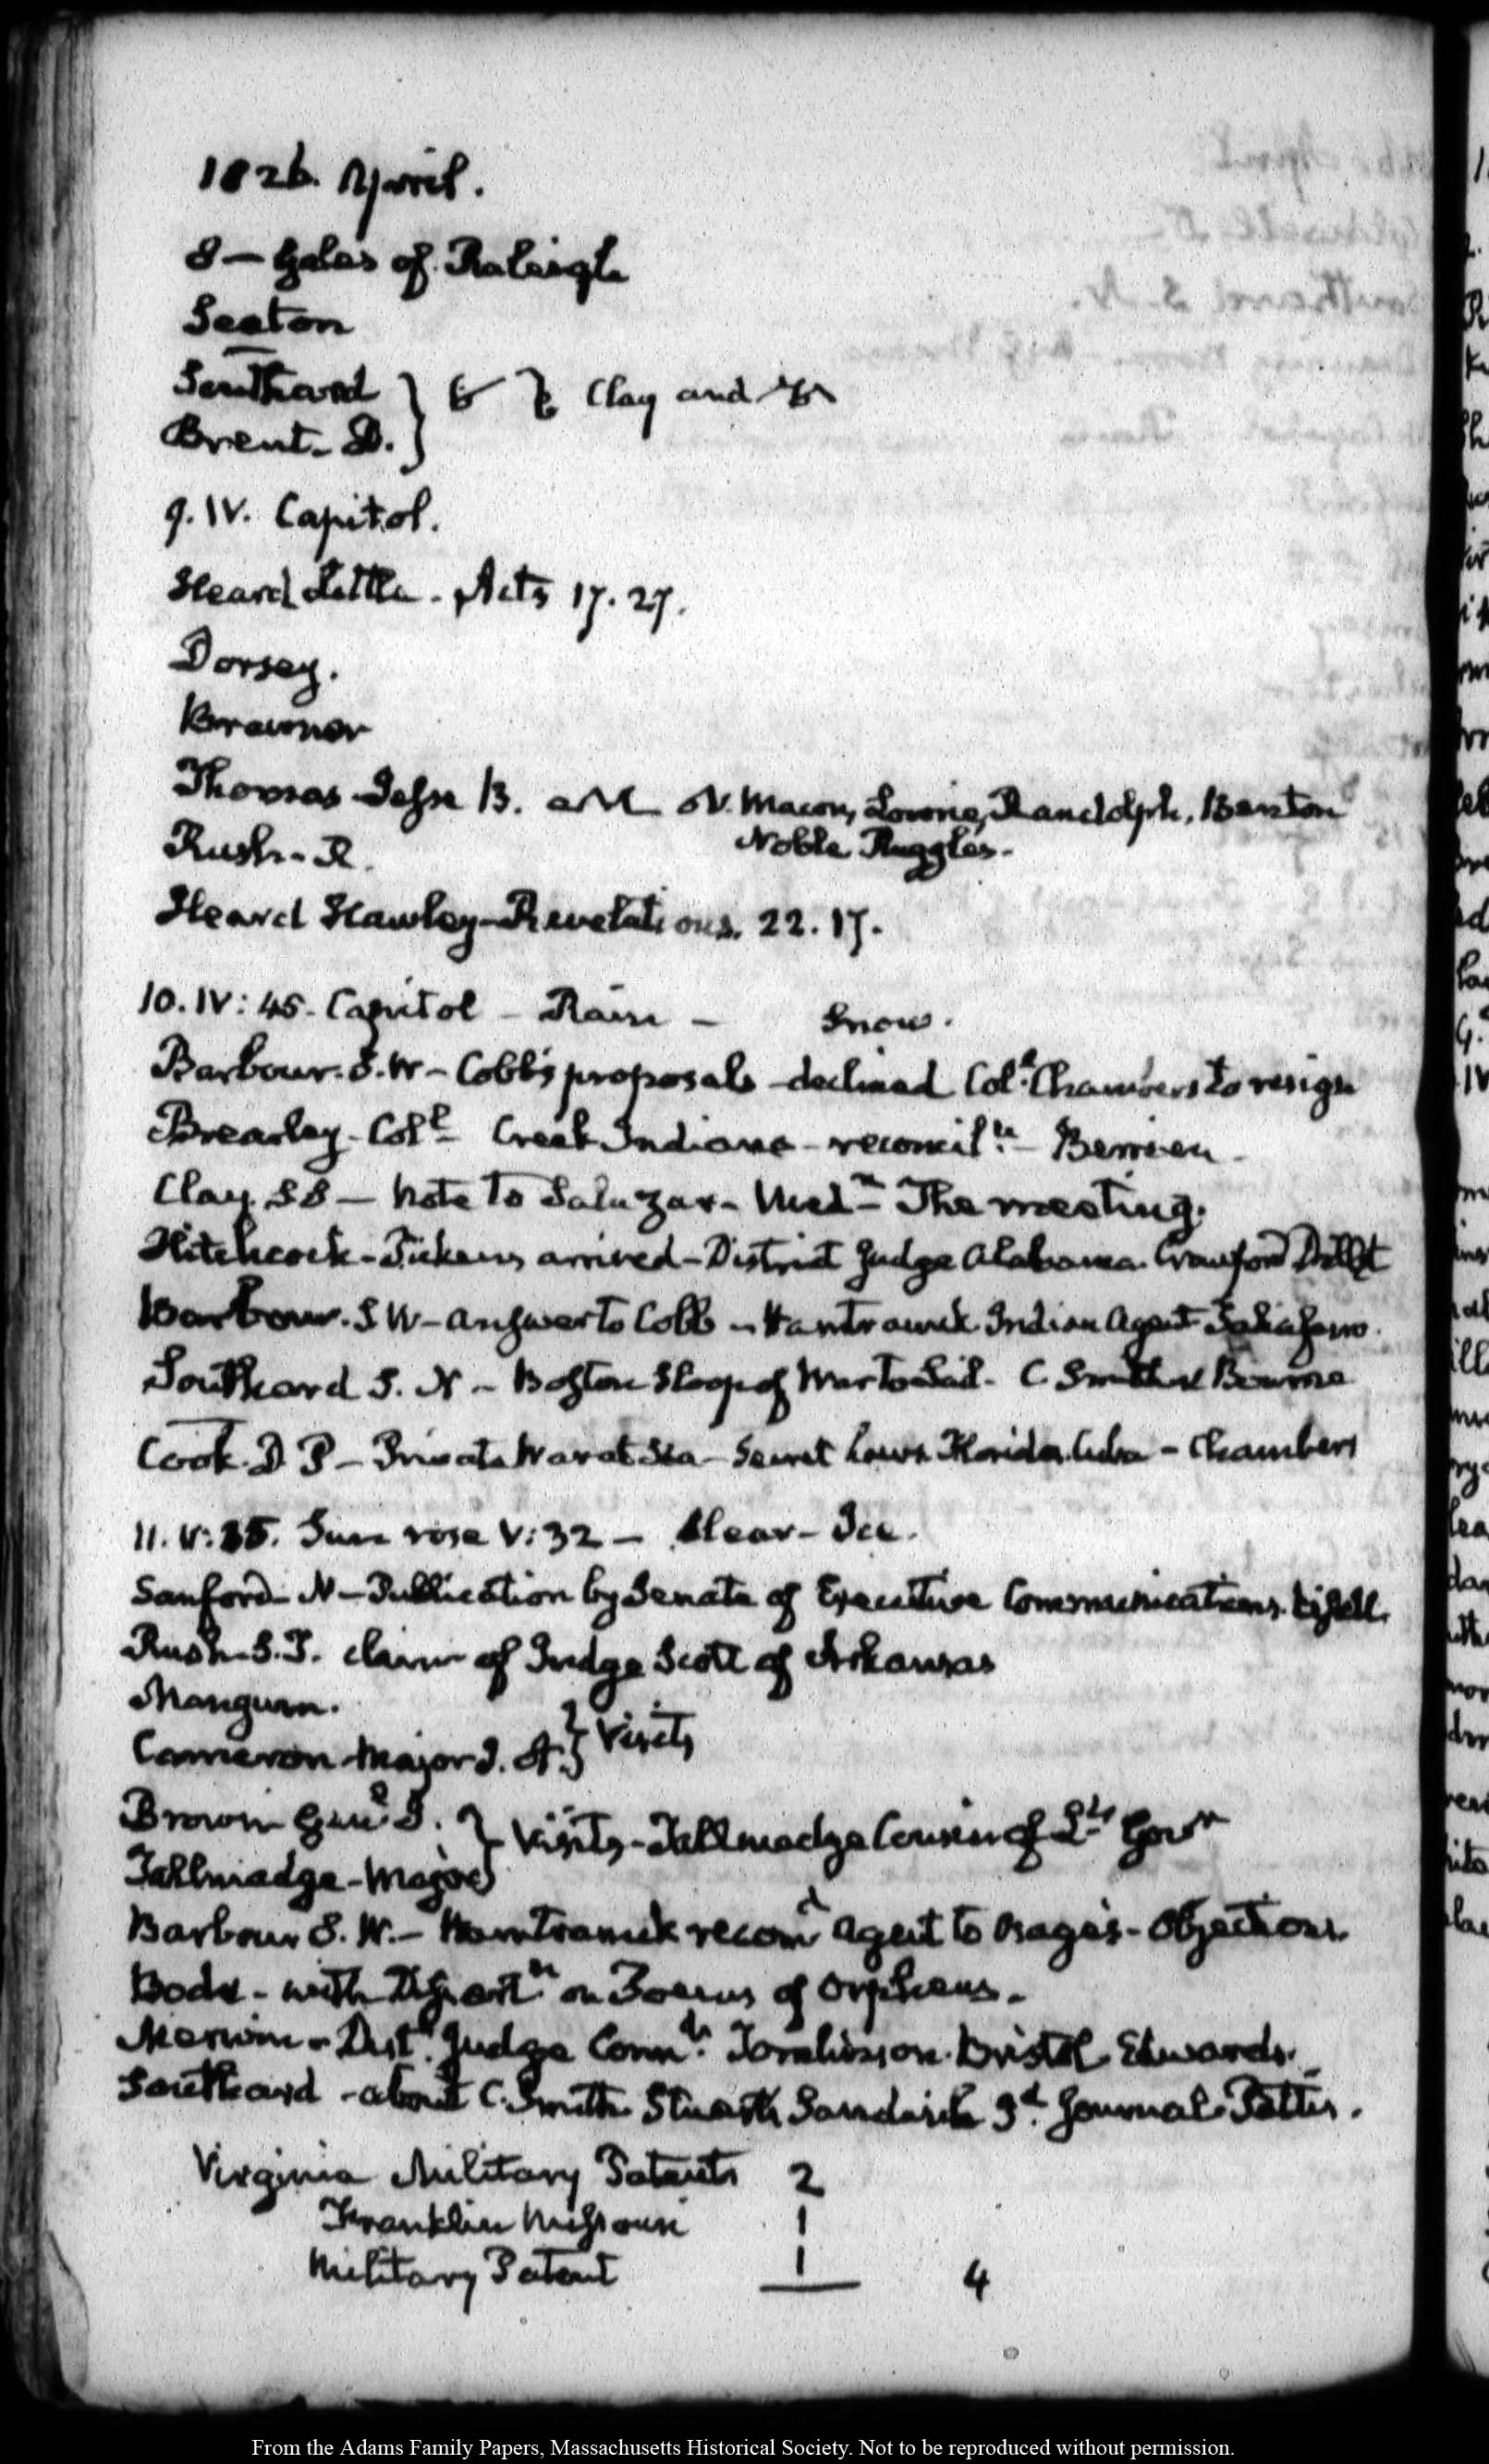 1826. April.
8 — Gales of Raleigh
Seaton
Southard } Clay and
Brent. D. }
9. IV. Capitol.
Heard Little. Acts 17. 27.
Dorsey.
Brawner
Thomas Jesse B. N. Macon, Randolph, Benton
Rush. R. Noble Ruggles.
Heard Hawley Revelations. 22. 17.
10. IV: 45. Capitol — Rain — Snow.
Barbour. S. W — Cobb's proposals declined Coll. Chambers to resign
Brearley. Coll. Creek Indians — reconciln. — Berrien
Clay. SS — Note to Salazar. Medn. The meeting.
Hitchcock — Pickens arrived — District Judge Alabama. Crawford
Barbour. S W — answer to Cobb — Hamtramck Indian Agent
Southard S. N — Boston Sloop of War to Sail. C. Smith & Bourne
Cook. D P — Private War at Sea — Secret Laws. Florida. Cuba — Chambers
11. V: 35. Sun rose V: 32 — Clear — Ice.
Sanford. N — Publication by Senate of Executive Communications.
Rush. S. T. claim of Judge Scott of Arkansas
Mangum. } Visits
Cameron Major }
Brown Genl. J. } Visits — Tallmadge Cousin of Lt. Govr
Tallmadge — Major }
Barbour S. W. — Hamtramck recomd Agent to Osages — Objections.
Bode — with Dissertn on Poems of Orpheus.
Merwin — Dist. Judge Connt. Tomlinson. Bristol. Edwards.
Southard — about C. Smith. Sandwich Id. Journal.
Virginia Military Patents 2
Franklin Missouri 1
Military Patent 1 4
From the Adams Family Papers, Massachusetts Historical Society. Not to be reproduced without permission.